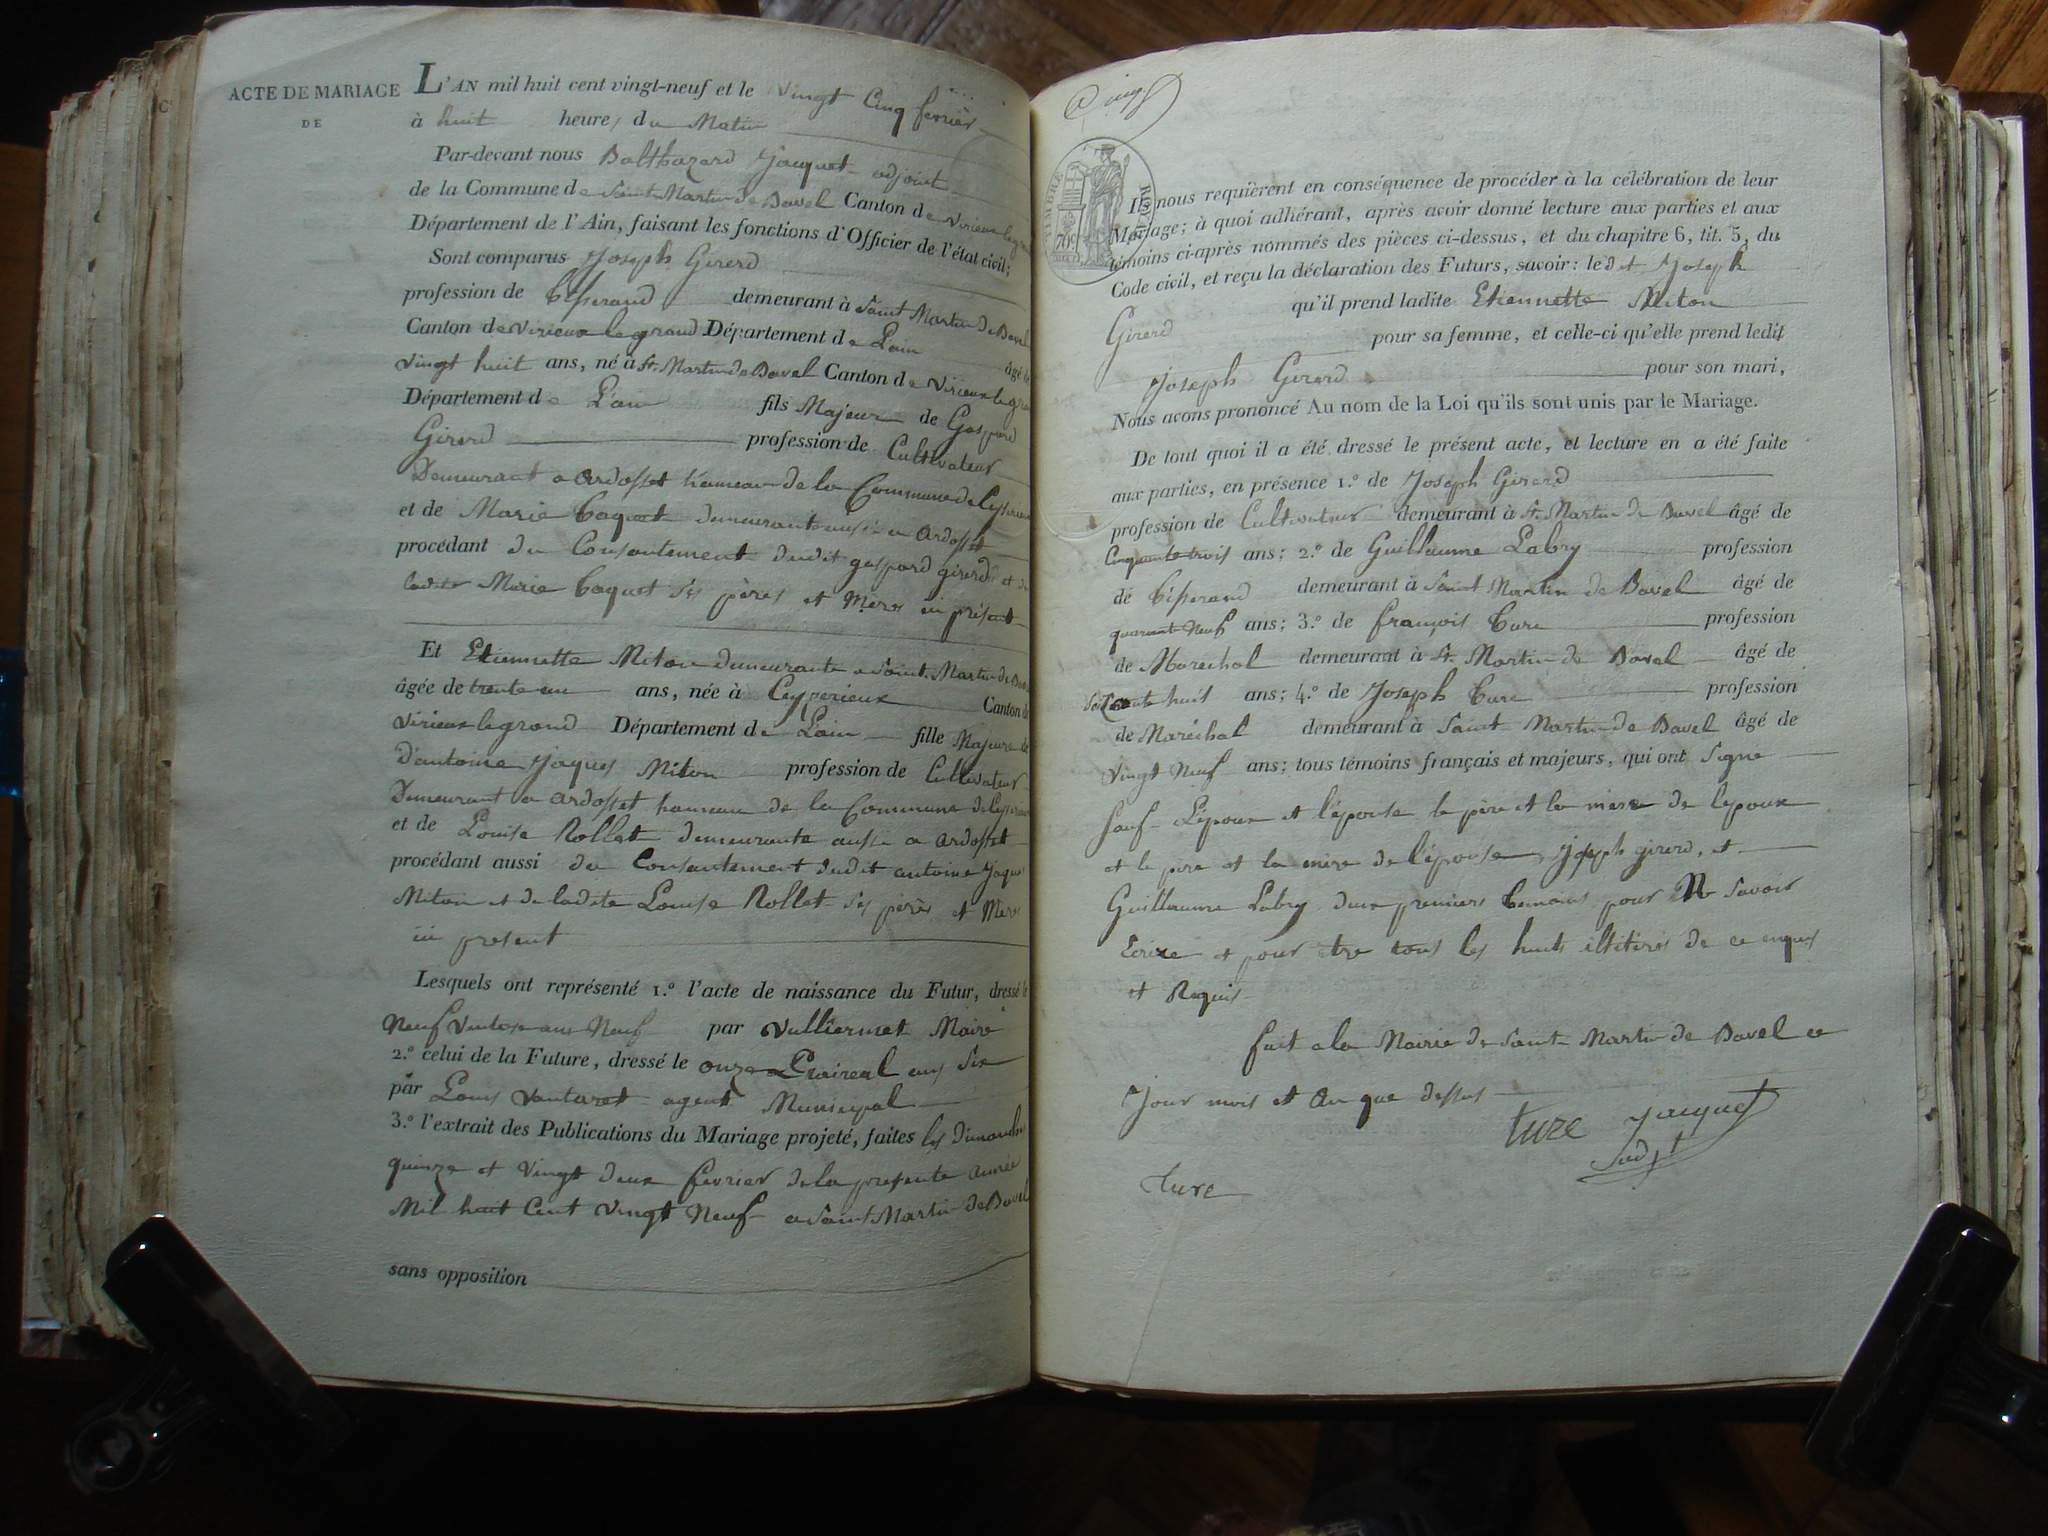 ACTE DE MARIAGE
DE
L'AN mil huit cent vingt-neuf et le vingt Cinq fevrier
à huit heures du Matin
Par-devant nous Balthazard Jacquet adjoint
de la Commune de Saint Martin de Bavel Canton de Virieux le grand
Département de l'Ain, faisant les fonctions d'Officier de l'état civil;
Sont comparus Joseph Girerd
profession de tisserand demeurant à Saint Martin de Bavel
Canton de Virieux le grand Département de Lain âgé de
vingt huit ans, né à St. Martin de Bavel Canton de Virieux le gra
Département de L'ain fils Majeur de Gaspard
Girerd profession de Cultivateur
Demeurant a Ardosset hameau de la Commune de Ceyserieux
et de Marie Caquet demeurante aussi a Ardosset
procédant du Consentement dudit gaspard girerd et de
ladite Marie Caquet ses pères et Mères ici présent
Et Etiennette Miton demeurante a Saint Martin de Bavel
âgée de trente un ans, née à Ceyserieux Canton de
Virieux le grand Département de Lain fille Majeure de
D'antoine Jaques Miton profession de Cultivateur
Demeurant a Ardosset hameau de la Commune de Ceyserieux
et de Louise Rollet demeurante aussi a Ardosset
procédant aussi du Consentement dudit antoine Jaques
Miton et de ladite Louise Rollet ses pères et Mères
ici present
Lesquels ont représenté 1.º l'acte de naissance du Futur, dressé le
Neuf Ventose ans Neuf par Vulliermet Maire
2.º celui de la Future, dressé le onze Praireal ans Six
par Louis agent Municipal
3.º l'extrait des Publications du Mariage projeté, faites les dimanches
quinze et Vingt deux fevrier de la presente année
Mil huit Cent Vingt Neuf a Saint Martin de Bavel
sans opposition
TIMBRE ROYAL
70c
Ils nous requièrent en conséquence de procéder à la célébration de leur
Mariage; à quoi adhérant, après avoir donné lecture aux parties et aux
témoins ci-après nommés des pièces ci-dessus, et du chapitre 6, tit. 5, du
Code civil, et reçu la déclaration des Futurs, savoir: ledit Joseph
Girerd qu'il prend ladite Etiennette Miton
pour sa femme, et celle-ci qu'elle prend ledit
Joseph Girerd pour son mari,
Nous avons prononcé Au nom de la Loi qu'ils sont unis par le Mariage.
De tout quoi il a été dressé le présent acte, et lecture en a été faite
aux parties, en présence 1.º de Joseph Girerd
profession de Cultivateur demeurant à St. Martin de Bavel âgé de
Cinquante trois ans; 2.º de Guillaume Labry profession
de tisserand demeurant à Saint Martin de Bavel âgé de
quarant Neuf ans; 3.º de françois ture profession
de Marechal demeurant à St. Martin de Bavel âgé de
Soixante huit ans; 4.º de Joseph ture profession
de Maréchal demeurant à Saint Martin de Bavel âgé de
Vingt Neuf ans; tous témoins français et majeurs, qui ont Signe
Sauf L'époux et l'épouse le père et la mere de lepoux
et le pere et la mère de l'épouse, joseph girerd, et
Guillaume Labry deux premiers temoins pour Ne Savoir
Ecrire et pour être tous les huits illitirés de ce enquis
et Requis
fait a la Mairie de Saint Martin de Bavel ce
Jour mois et An que dessus
ture Jacquet
adjt
ture